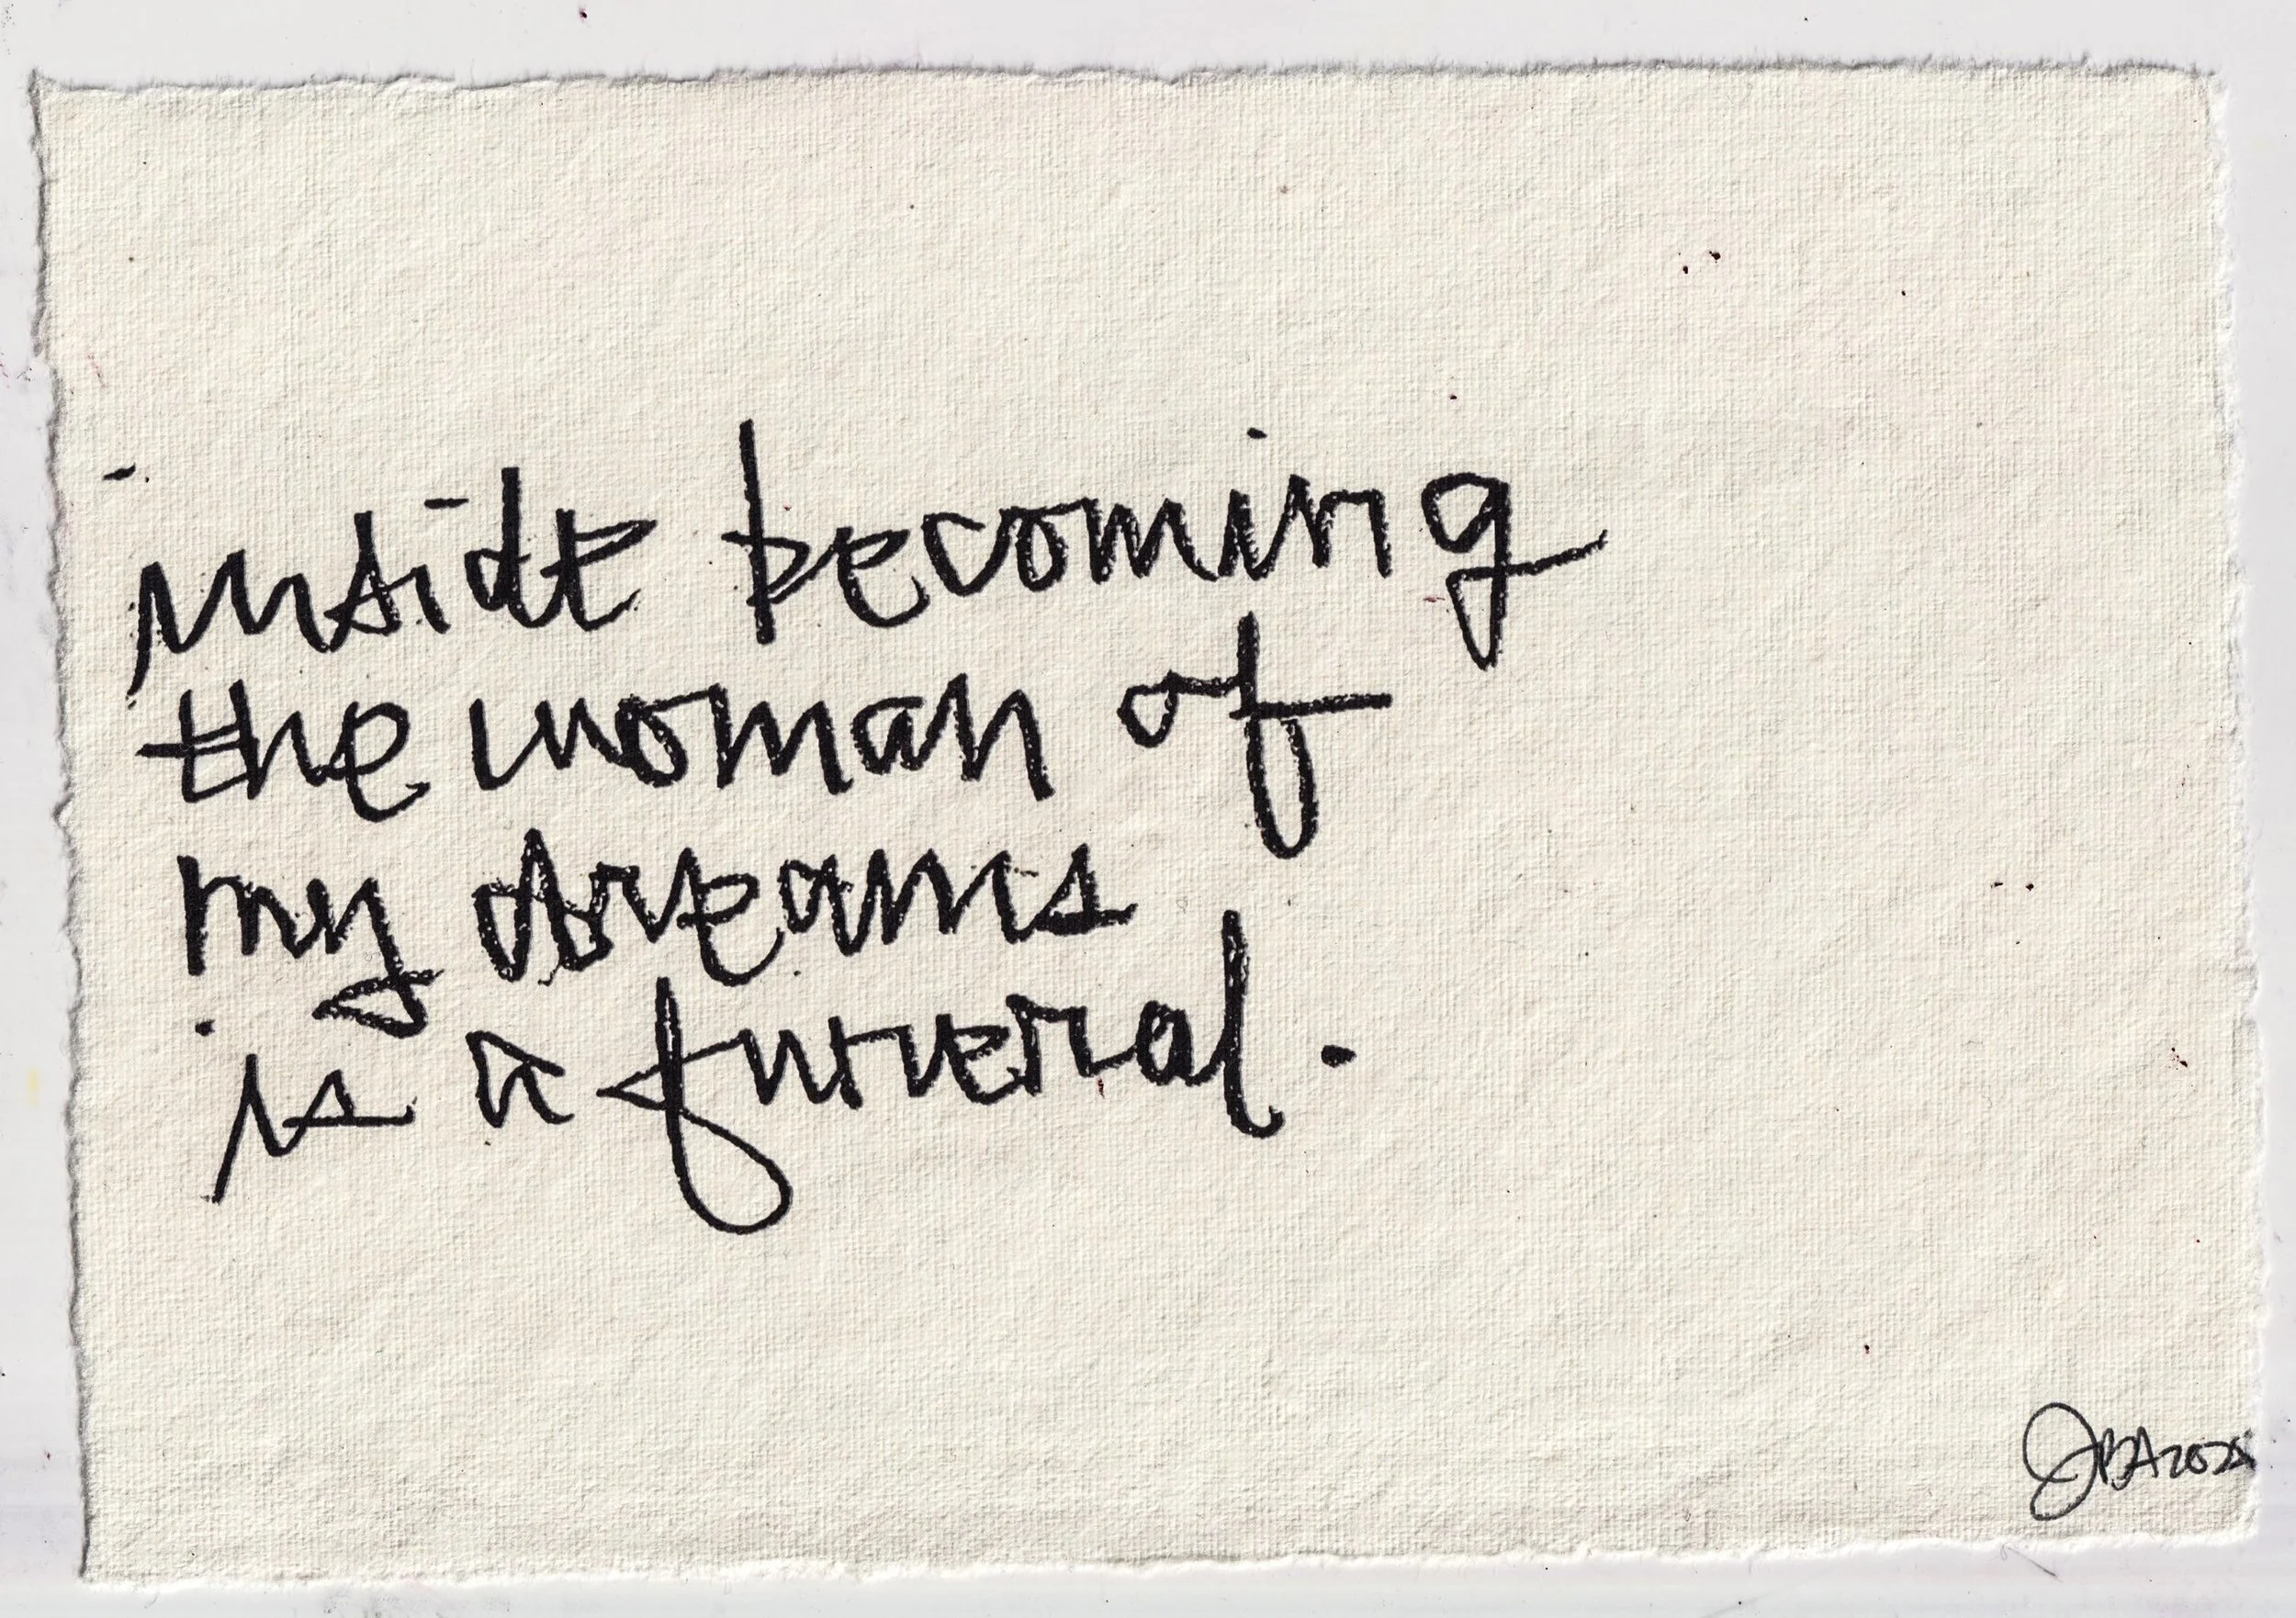 inside becoming
the woman of
my dreams
is a funeral.